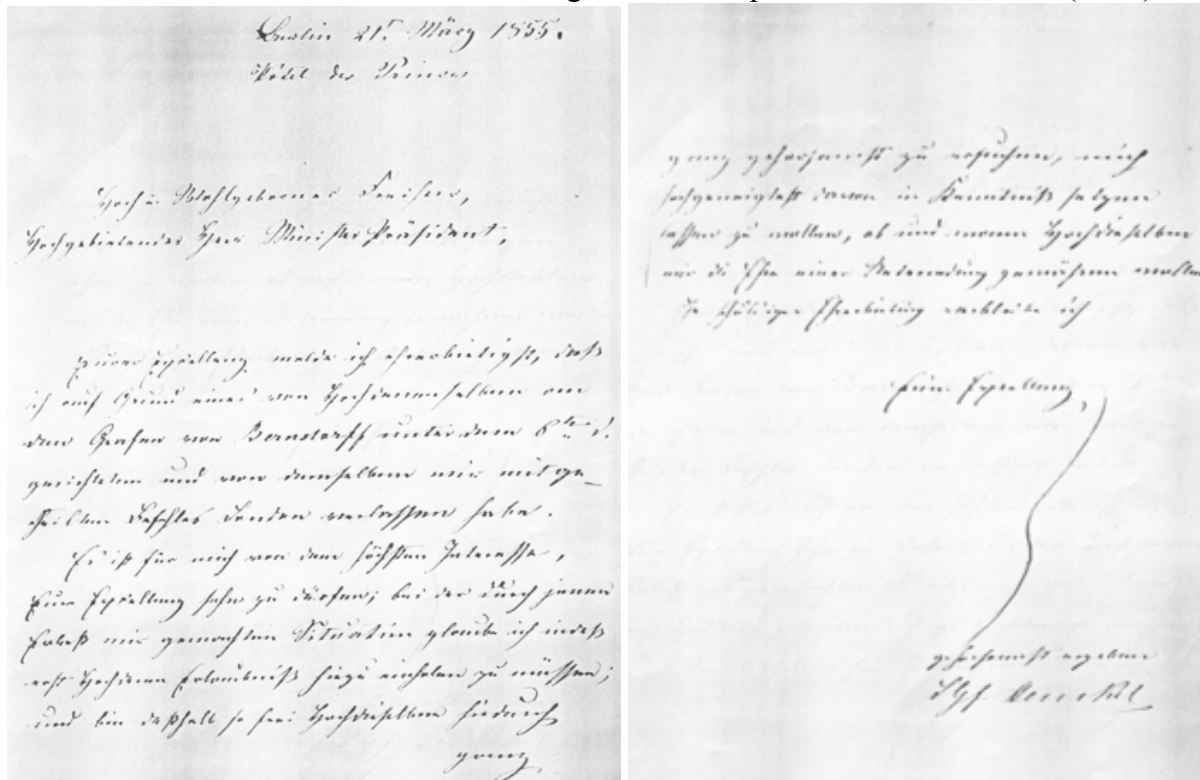 Berlin 21t. März 1855.
Hôtel des Princes
Hoch u. Wohlgeborner Freiherr,
Hochgebietender Herr Ministerpräsident,
Eurer Excellenz melde ich ehrerbietigst, daß
ich auf Grund eines von Hochdenenselben an
den Grafen von Bernstorff unter dem 6ten d.
gerichteten und von demselben mir mitge-
theilten Befehles London verlassen habe.
Es ist für mich von dem höchsten Interesse,
Eure Excellenz sehn zu dürfen; bei der durch jenen
Erlaß mir gemachten Situation glaube ich indeß
erst Hochderen Erlaubniß hiezu einholen zu müssen;
und bin deßhalb so frei Hochdieselben hiedurch
ganz
ganz gehorsamst zu ersuchen, mich
hochgeneigtest davon in Kenntniß setzen
lassen zu wollen, ob und wann Hochdieselben
mir die Ehre einer Unterredung gewähren wollen
In schuldiger Ehrerbietung verbleibe ich
Eurer Excellenz
gehorsamst ergebener